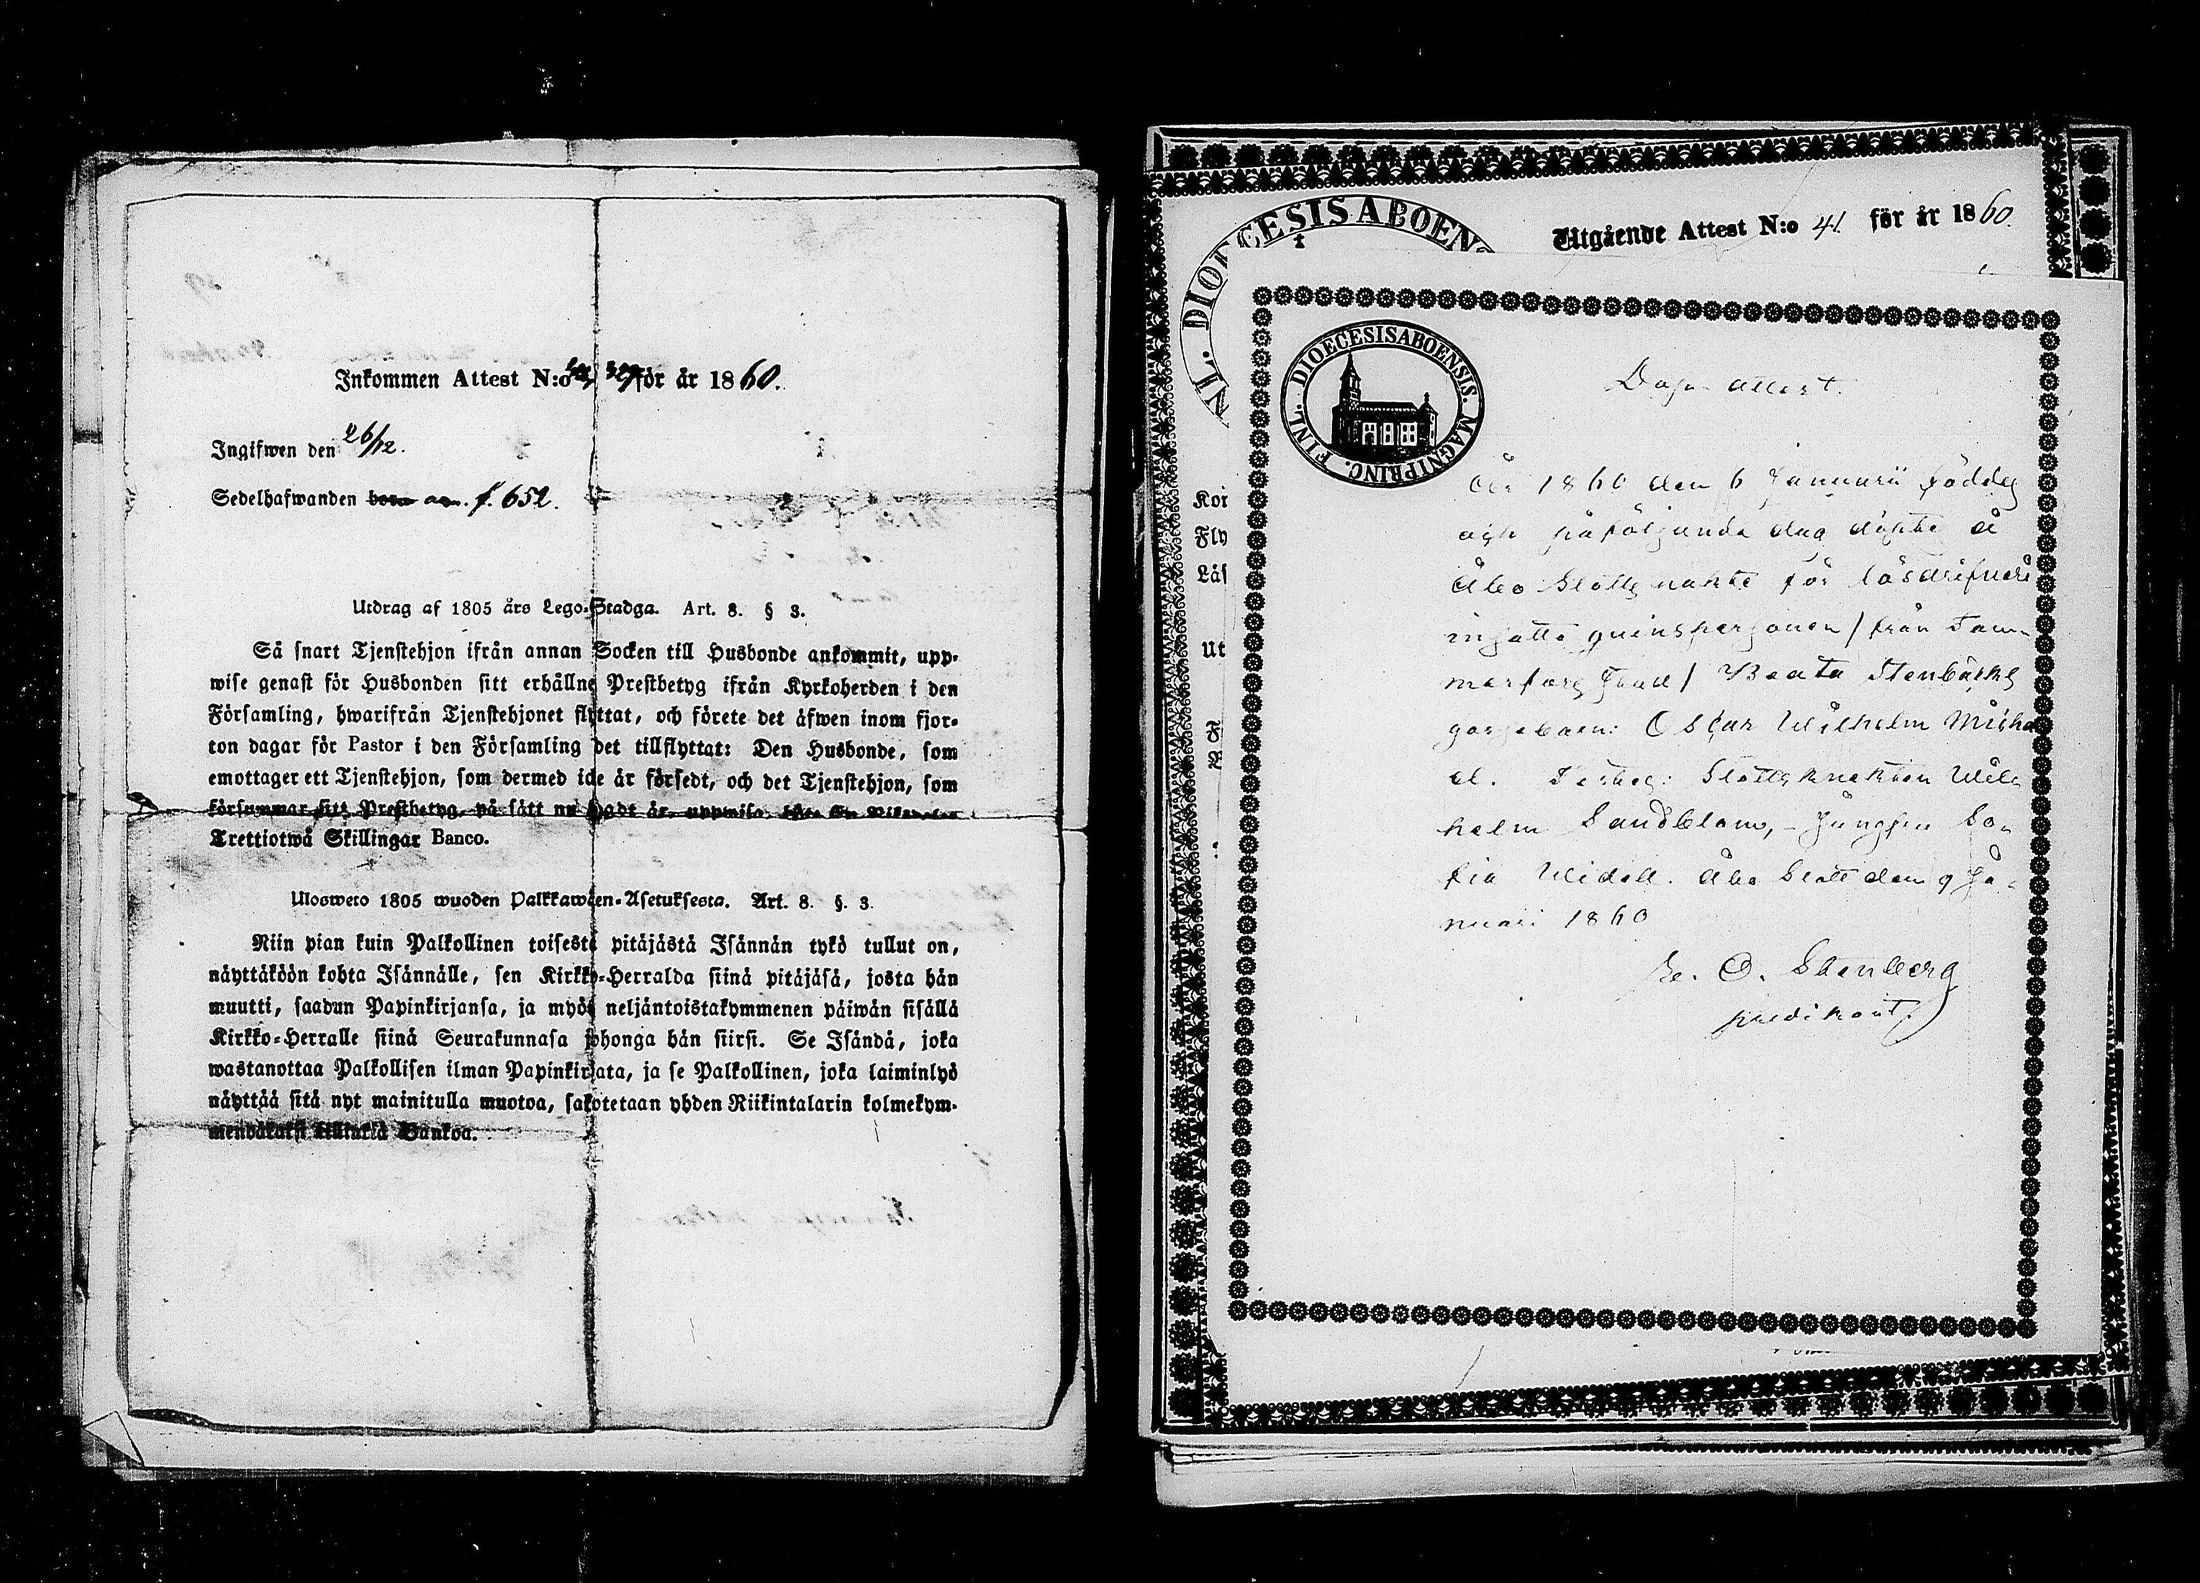 Inkommen Attest N:o för år 1860.
Ingifwen den 26/12.
Sedelhafwanden f. 652.
Utdrag af 1805 års Lego-Stadga. Art. 8. § 3.
Så snart Tjenstehjon ifrån annan Socken till Husbonde ankommit, upp-
wise genast för Husbonden sitt erhållne Prestbetyg ifrån Kyrkoherden i den
Församling, hwarifrån Tjenstehjonet flyttat, och förete det äfwen inom fjor-
ton dagar för Pastor i den Församling det tillflyttat: Den Husbonde, som
emottager ett Tjenstehjon, som dermed icke är försedt, och det Tjenstehjon, som
försummar sitt Prestbetyg, på sätt nu sagdt är, uppwisa,
Trettiotwå Skillingar Banco.
Ulosweto 1805 wuoden Palkkawäen-Asetuksesta. Art. 8. §. 3.
Niin pian kuin Palkollinen toisesta pitäjästä Isännän tykö tullut on,
näyttäköön kohta Isännälle, sen Kirkko-Herralda siinä pitäjäsä, josta hän
muutti, saadun Papinkirjansa, ja myös neljäntoistakymmenen päiwän sisällä
Kirkko-Herralle siinä Seurakunnasa johonga hän siirsi. Se Isändä, joka
wastanottaa Palkollisen ilman Papinkirjata, ja se Palkollinen, joka laiminlyö
näyttää sitä nyt mainitulla muotoa, sakotetaan yhden Riikintalarin kolmekym-
mendäkaksi killinkiä Bankoa.
DIOECESIS ABOENS
NL.
Utgående Attest N:o 41. för år 1860.
Koi
Fly
Läs
Ut
FINL. DIOECESIS ABOENSIS. MAGNI PRINC.
Dop attest.
År 1860 den 6 Januarii föddes
och påföljande dag döptes å
Åbo Slotts häkte för lösdrifveri
insatta qvinspersonen / från Tam-
merfors stad / Beata Stenbäcks
gossebarn: Oscar Wilhelm Micha
el. Testes: Slottsknekten Wil
helm Sandblom, - Jungfru So-
fia Widell. Åbo Slott den 9 Ja-
nuari 1860
O. Stenberg
predikant.